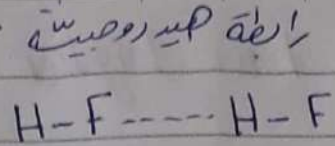 رابطة هيدروجينيّة
H-F-----H-F